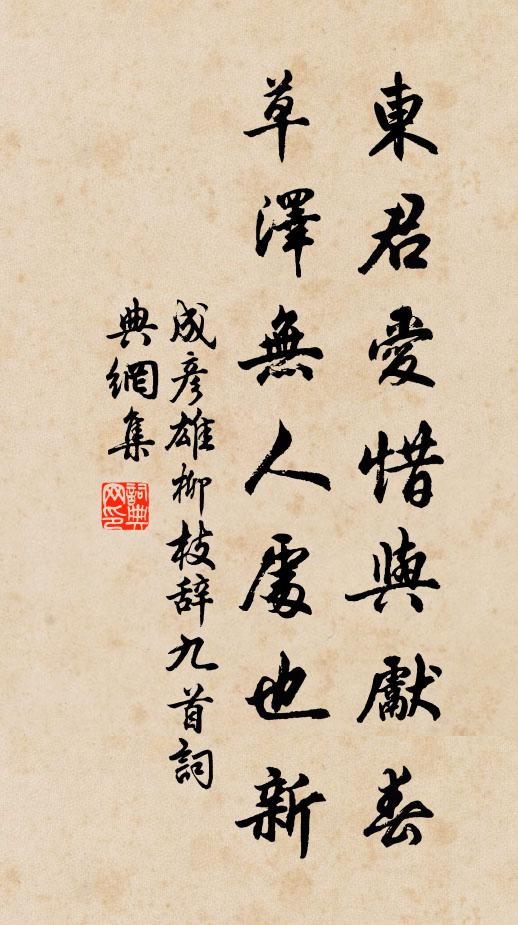 東君愛惜與獻春
草澤無人處也新
成彥雄柳枝辞九首詞
典網集
詞典网印